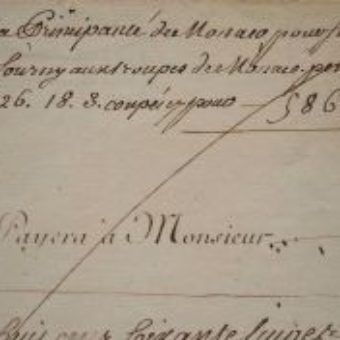 a Principauté de Monaco pour
fourny aux troupes de Monaco. pen
26. 18. 3. coupés pour — 586
Payera à Monsieur
soixante